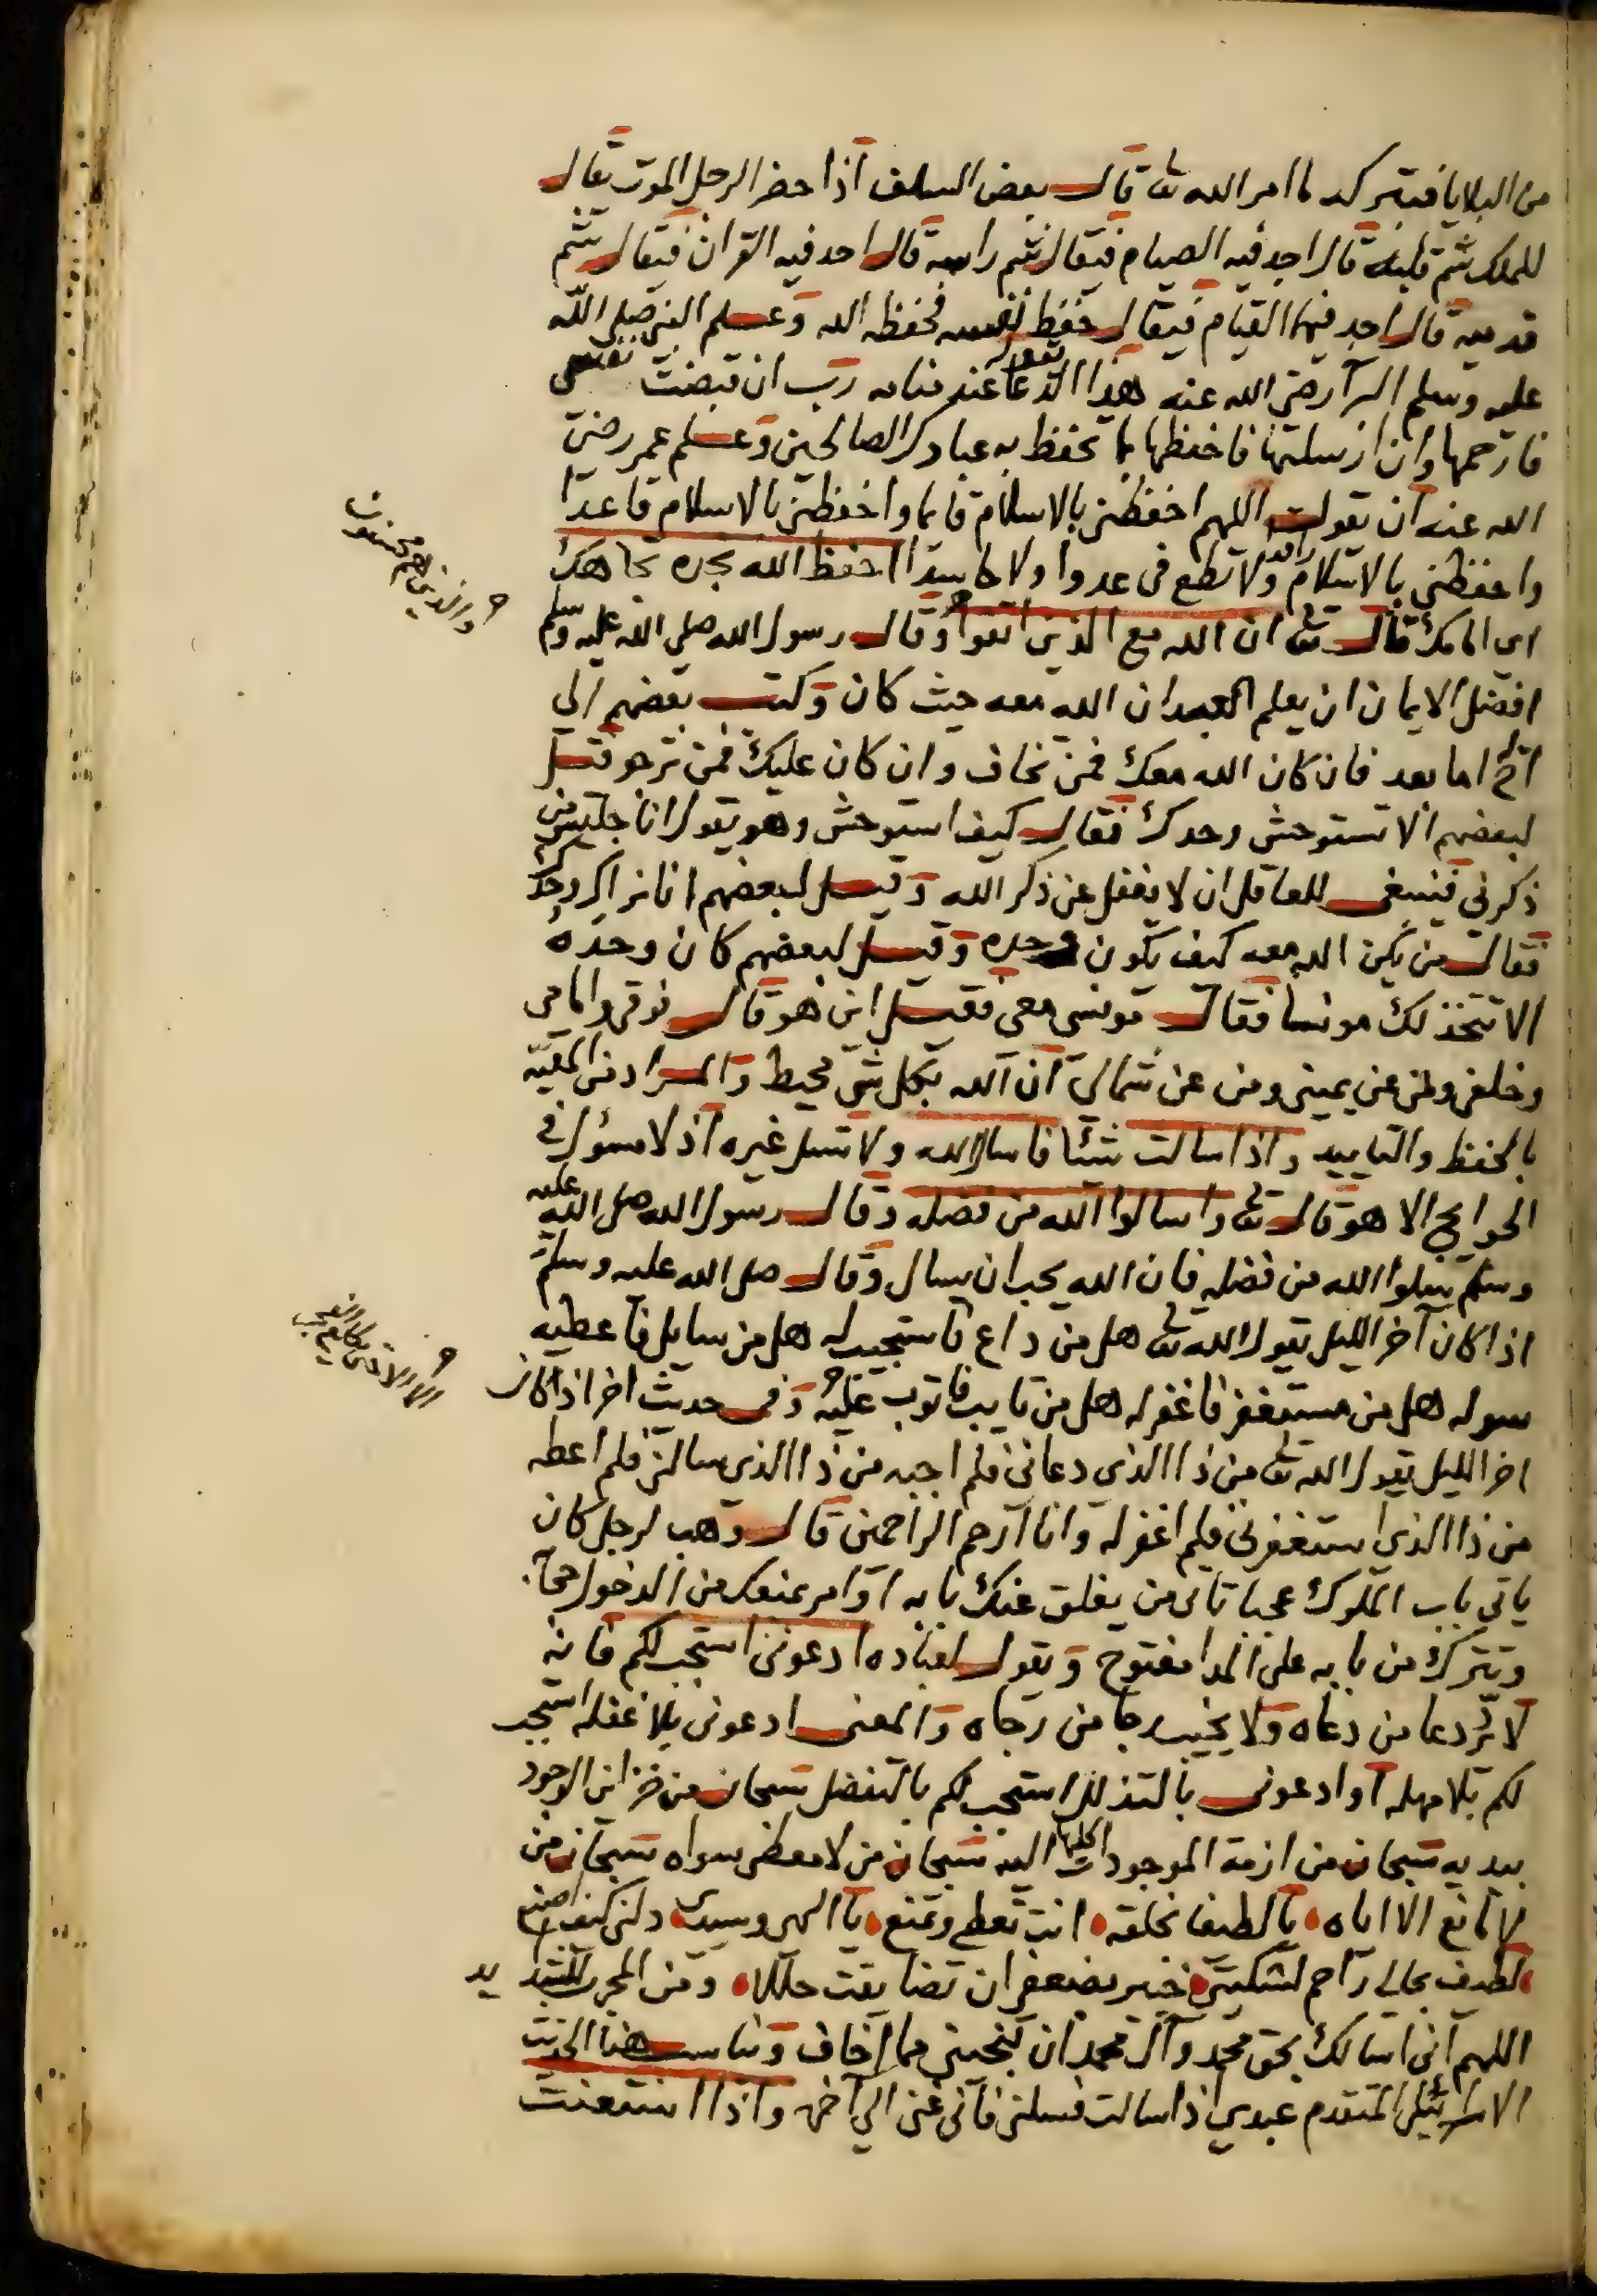 من البلايا فتتركه لما امر الله تعا قال بعض السلف اذا حضر الرجل الموت يقال
للملك شم قلبه قال اجد فيه الصيام فيقال شم راسه قال اجد فيه القران فيقال شم
قدميه قال اجد فيهما القيام فيقال حفظ نفسه فحفظه الله وعلم النبي صلى الله
عليه وسلم البرآ رضي الله عنه هذا الدعا يقوله عند منامه رب ان قبضت نفسي
فارحمها وان ارسلتها فاحفظها بما تحفظ به عبادك الصالحين وعلم عمر رضى
الله عنه ان يقول اللهم احفظني بالاسلام قايما واحفظني بالاسلام قاعدا
واحفظني بالاسلام راقدا ولا تطع في عدوا ولا حاسدا احفظ الله تجده تجاهك
اي امامك قال تعا ان الله مع الذين اتقوا وقال رسول الله صلى الله عليه وسلم
والذين هم محسنون
افضل الايمان ان يعلم العبد ان الله معه حيث كان وكتب بعضهم الي
اخ له اما بعد فان كان الله معك فمن تخاف وان كان عليك فمن ترجو قيل
لبعضهم الا تستوحش وحدك فقال كيف استوحش وهو يقول انا جليس من
ذكرني فينبغي للعاقل ان لا يغفل عن ذكر الله وقيل لبعضهم انا نراك وحدك
فقال من يكن الله معه كيف يكون وحده وقيل لبعضهم كان وحده
الا تتخذ لك مونسا فقال مونسي معي فقيل اين هو قال فوقي وامامي
وخلفي وعن يميني ومن عن شمالي ان الله بكل شي محيط والمراد من المعية
بالحفظ والتاييد واذا سالت شيئا فاسال الله ولا تسل غيره اذ لا مسؤل في
الحوايج الا هو قال تعا واسالوا الله من فضله وقال رسول الله صلى الله عليه
وسلم سلوا الله من فضله فان الله يحب ان يسال وقال صلى الله عليه وسلم
اذا كان آخر الليل يقول الله تعا هل من داع فاستجيب له هل من سايل فاعطيه
سوله هل من مستغفر فاغفر له هل من تايب فاتوب عليه وفي حديث اخر اذا كان
اخر الليل يقول الله تعا من ذا الذي دعاني فلم اجبه من ذا الذي سالني فلم اعطه
من ذا الذي استغفرني فلم اغفر له وانا ارحم الراحمين قال وهب لرجل كان
ياتي باب الملوك عجبا تاتي من يغلق عنك بابه اوامر بمنعك من الدخول
وتترك من بابه على المدا مفتوح ويقول لعباده ادعوني استجب لكم فانه
لا يرد دعا من دعاه ولا يخيب رجا من رجاه والمعنى ادعوني بلا غفله استجب
لكم بلا مهله او ادعوني بالتذلل استجب لكم بالتفضل سبحان من خزاين الوجود
بيديه سبحان من ازمة الموجودات كلها اليه سبحان من لا معطي سواه سبحان من
لا مانع الا اياه يا لطيفا بخلقه انت تعطي وتمنع يا الهي وسيدي دلني كيف اصنع
لطيف بحالي راحم لشكيتي خبير بضعفي ان تضايقت حلها ومن المجرب للشدايد
اللهم اني اسالك بحق محمد وآل محمد ان تنجيني مما اخاف ويناسب هذا الحديث
الاسرائيلي المتقدم عبدي اذا سالت فسلني فاني غني الي آخره واذا استعنت